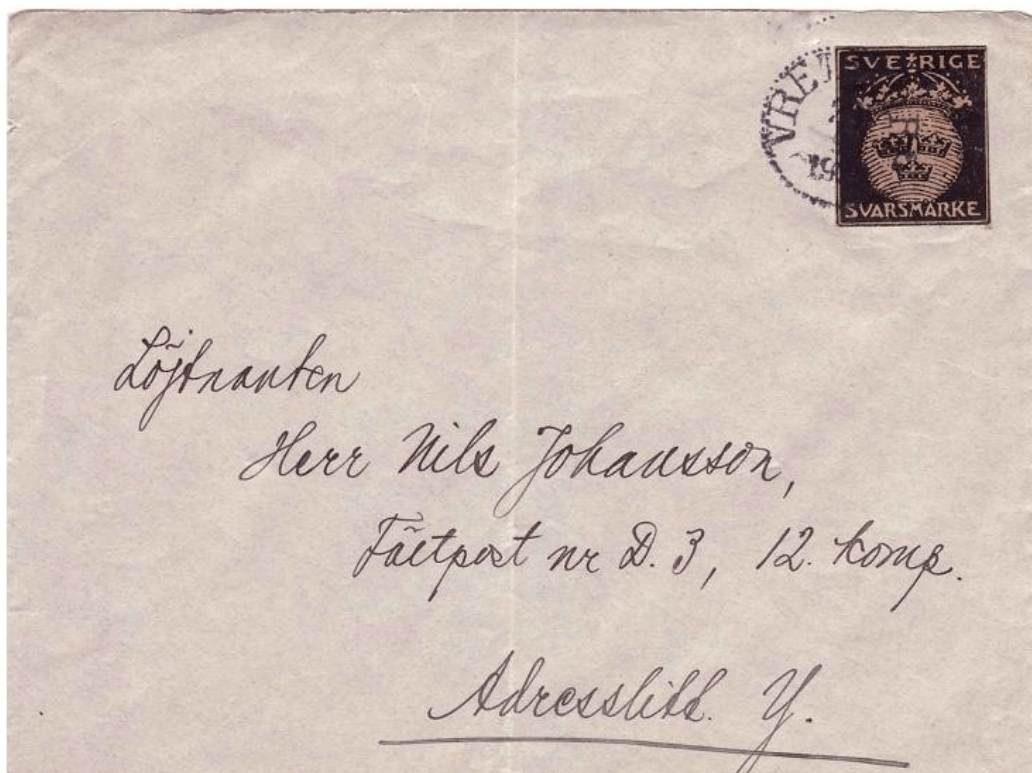 SVERIGE
SVARSMÄRKE
Löjtnanten
Herr Nils Johansson,
Fältpost nr D. 3, 12. komp.
Adresslitt. Y.